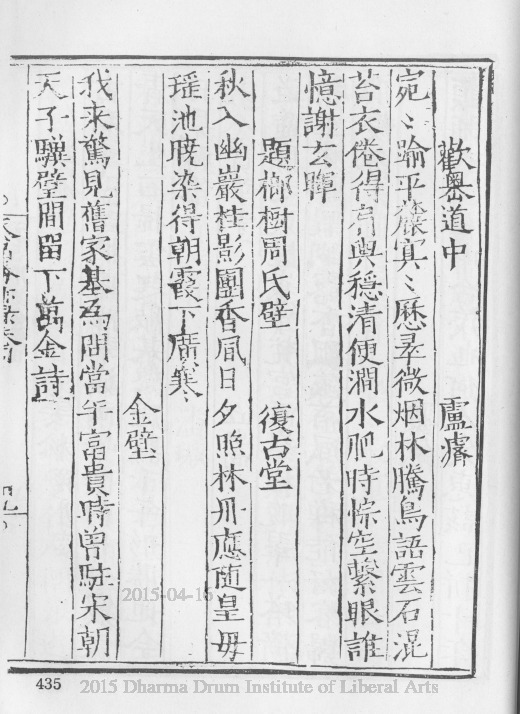 歡嶴道中　盧濬
宛〻踰平麓冥〻歷翠微烟林騰鳥語雲石混
苔衣倦得肩輿穩清便澗水肥時悰空繫眼誰
憶謝玄暉
題榔樹周氏壁　復古堂
秋入幽巖桂影團香凨日夕照林丹應随皇毋
瑶池曉染得朝霞下廣寒
金壁
我來驚見舊家基為問當年富貴時曾駐宋朝
天子驥壁間留下萬金詩
2015-04-16
435
2015 Dharma Drum Institute of Liberal Arts